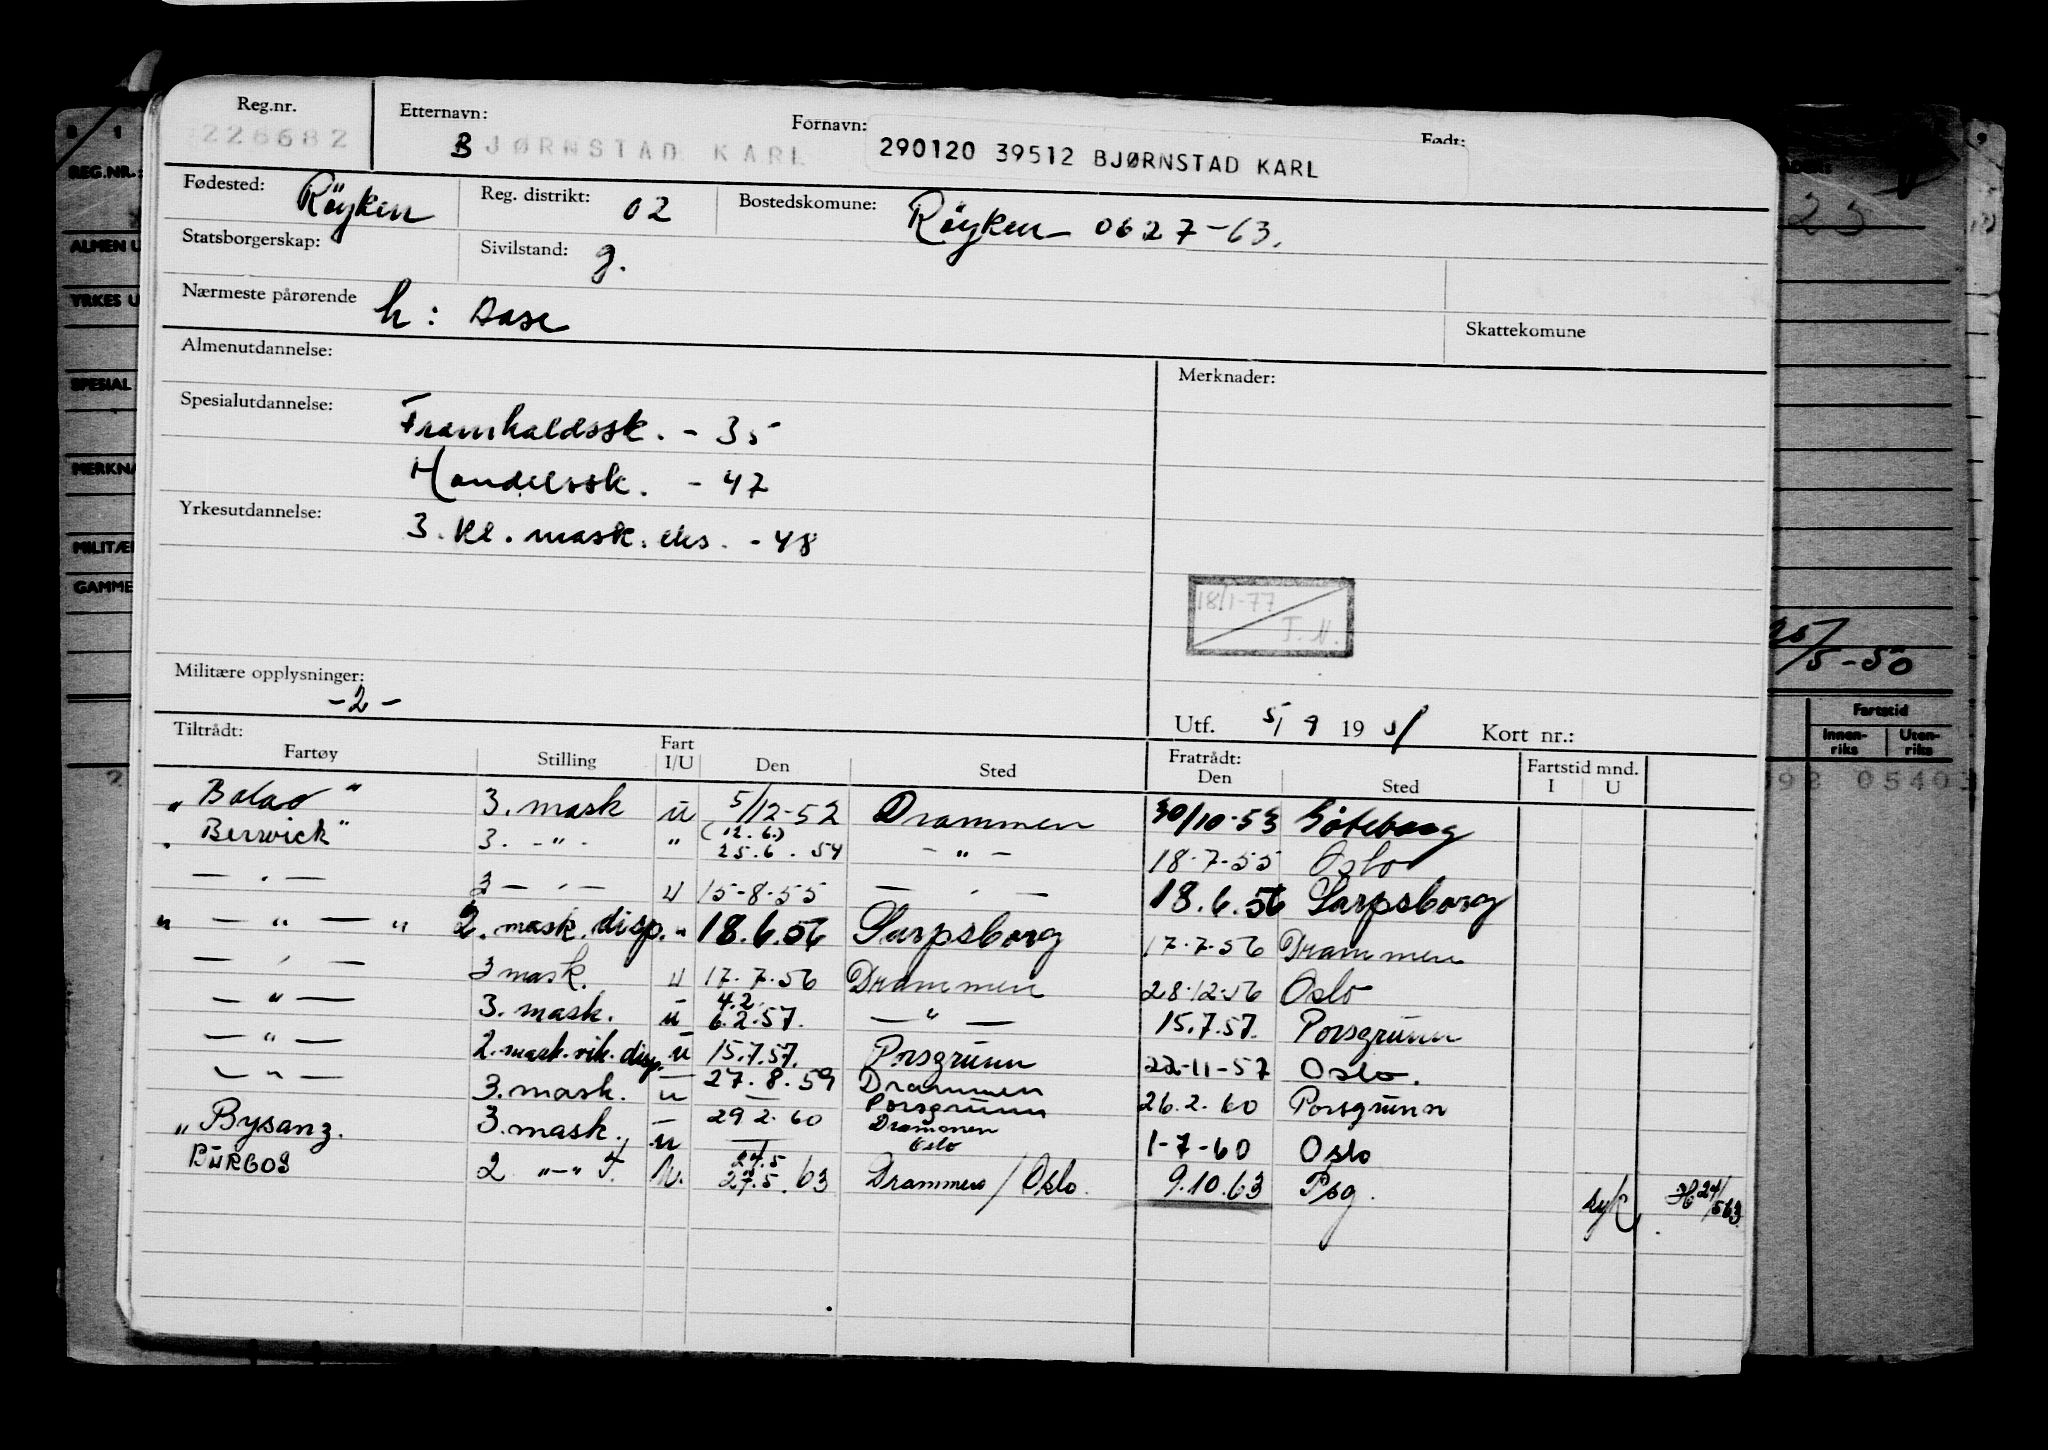 Reg.nr. Etternavn: Fornavn: Født:
226682 BJØRNSTAD KARL 290120 39512 BJØRNSTAD KARL
Fødested: Röyken Reg. distrikt: 02 Bostedskomune: Röyken 0627-63.
Statsborgerskap: Sivilstand: g.
Nærmeste pårørende h: Aase
Skattekomune
Almenutdannelse: Merknader:
Spesialutdannelse: Framhaldssk. - 35
Handelssk. - 47
Yrkesutdannelse: 3. kl. mask. eks. - 48
18/1-77
T. N.
Militære opplysninger:
-2-
Utf. 5/9 1951 Kort nr.:
Tiltrådt: Fratrådt: Fartstid mnd.
Fartøy Stilling Fart I/U Den Sted Den Sted I U
"Balao" 3. mask u 5/12-52 Drammen 30/10-53 Göteborg
" Berwick" 3. -"- " (12.6.) 25.6.54 -"- 18-7-55 Oslo
-"- 3 -"- u 15-8-55 -"- 18.6.56 Sarpsborg
" -"- " 2. mask. disp. " 18.6.56 Sarpsborg 17-7-56 Drammen
-"- 3 mask. u 17.7.56 Drammen 28-12-56 Oslo
-"- 3. mask. u 4.2. 6.2.57. -"- 15.7.57. Porsgrunn
-"- 2. mask. vik. disp. u 15.7.57. Porsgrunn 22-11-57 Oslo.
-"- 3. mask. u 27.8.59 Drammen 26.2.60 Porsgrunn
"Bysanz. 3. mask. u 29.2.60 Porsgrunn Drammen Oslo 1-7-60 Oslo
BURGOS 2 "-" U. 24.5 27.5.63 Drammen / Oslo. 9.10.63 Psg. syk 24/5 63
8 1
REG.NR.:
ALMEN U
YRKES U
SPESIAL
MERKNA
MILITÆR
GAMME
2
23
25/5-50
Fartstid
Innenriks Utenriks